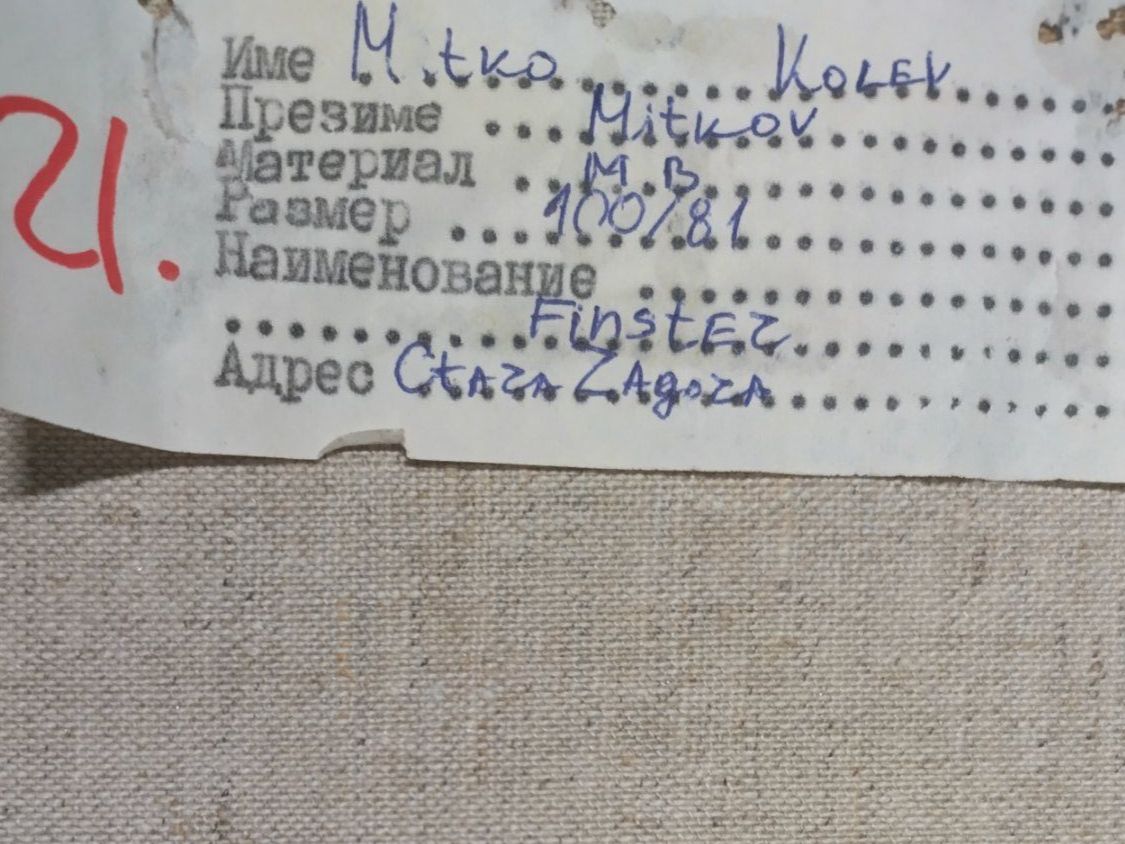 Име Mitko Kolev
Презиме Mitkov
Материал M B
Размер 100/81
Наименование
FinstEr
Адрес CtArA ZAgorA
21.